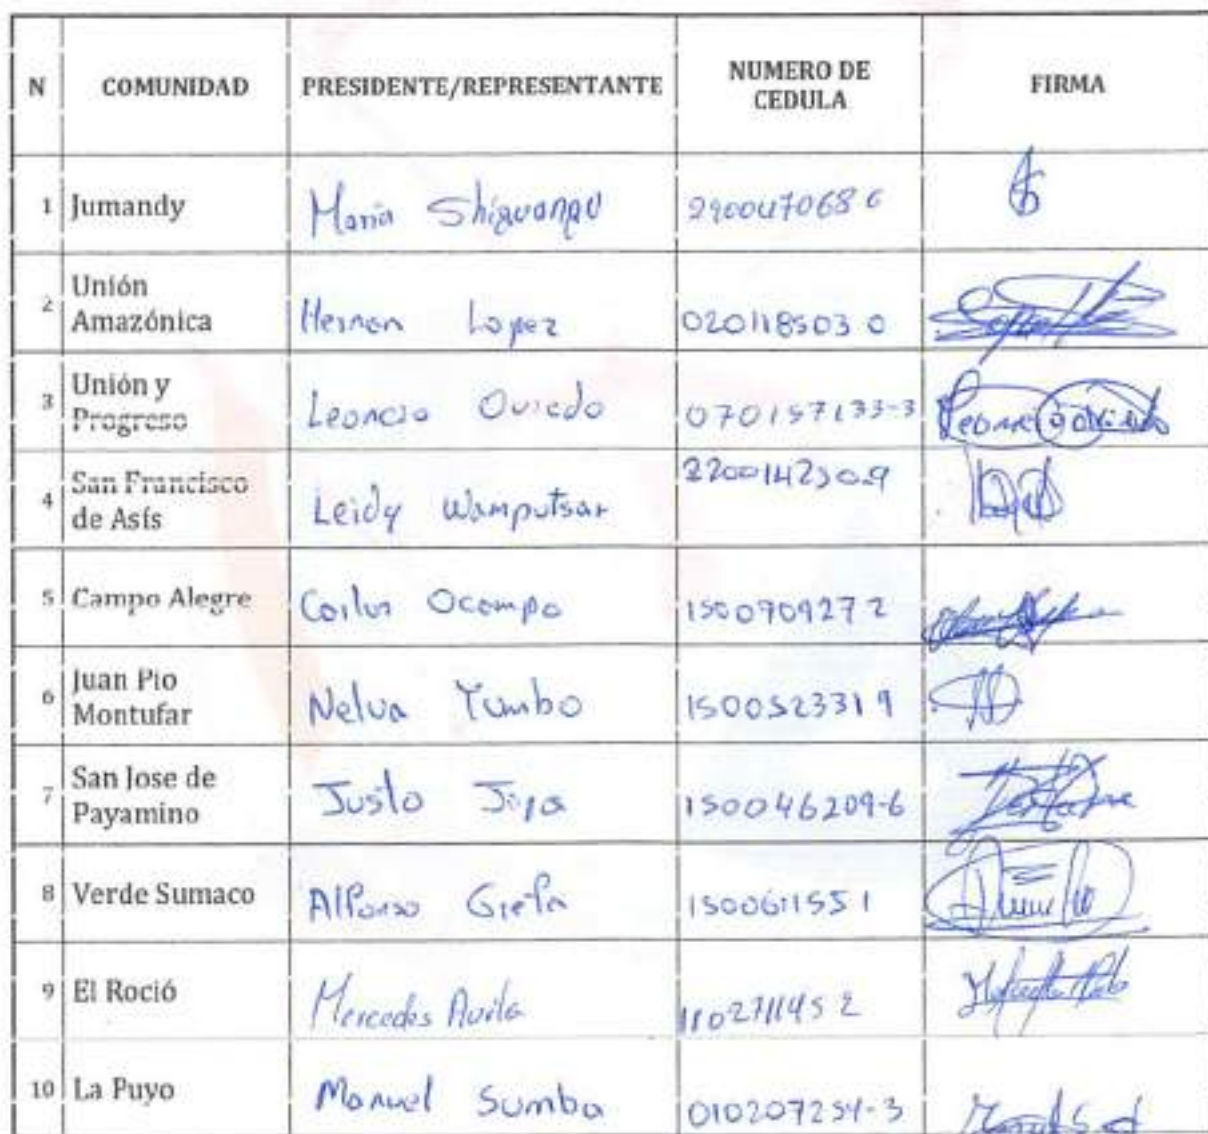 N COMUNIDAD PRESIDENTE/REPRESENTANTE NUMERO DE CEDULA FIRMA
1 Jumandy Maria Shiguango
2 Unión Amazónica Hernan Lopez 020118503 0
3 Unión y Progreso Leoncio Oviedo 070157133-3
4 San Francisco de Asís Leidy Wamputsar 2200142309
5 Campo Alegre Carlos Ocampo 1500709272
6 Juan Pio Montufar Nelva Yumbo 1500523319
7 San Jose de Payamino Justo Jipa 150046209-6
8 Verde Sumaco Alfonso Grefa 1500611551
9 El Roció Mercedes Avila 110271145 2
10 La Puyo Manuel Sumba 010207254-3